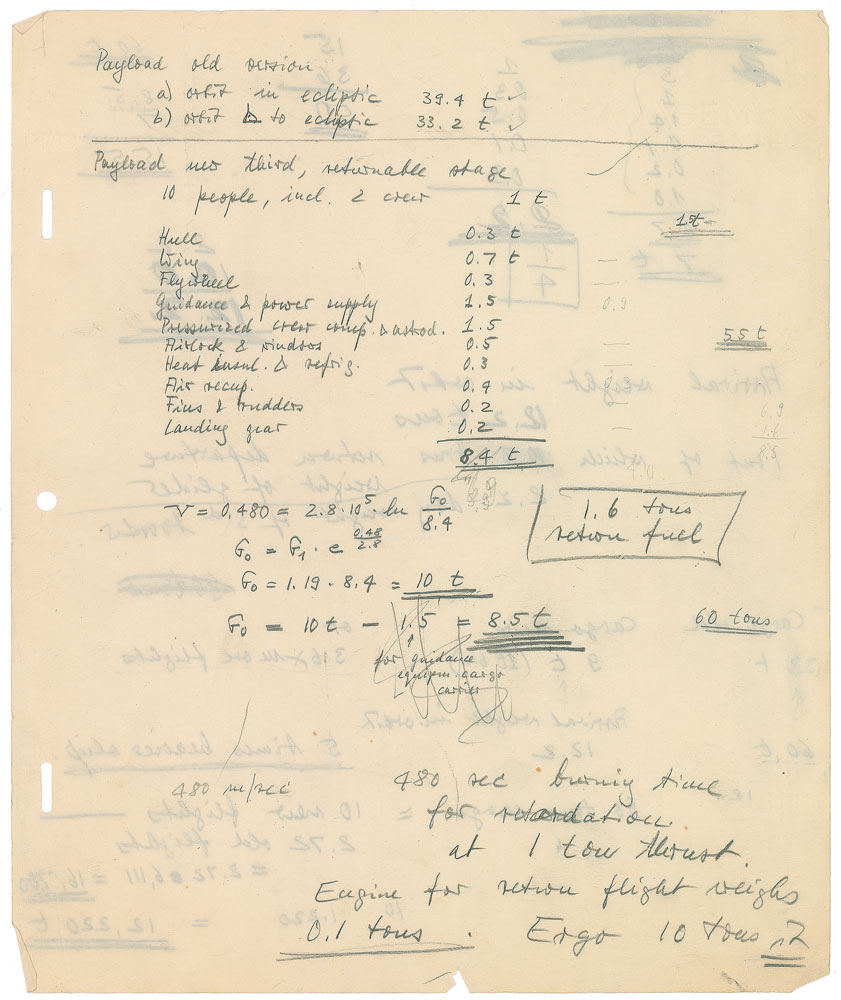 Payload old version
a) orbit in ecliptic 39.4 t ✓
b) orbit to ecliptic 33.2 t ✓
Payload new third, returnable stage
10 people, incl. 2 crew 1 t
1.5t
Hull 0.3 t
Wing 0.7 t —
Flywheel 0.3 —
Guidance & power supply 1.5 0.9
Pressurized crew comp. & astrod. 1.5
55 t
Airlock & windows 0.5
Heat insul. & refrig. 0.3
Air recup. 0.9
Fins & rudders 0.2
Landing gear 0.2
6.9
1.6
8.5
8.4 t
v = 0,480 = 2.8 · 10⁵ · ln G₀/8.4
1.6 tons
return fuel
G₀ = G₁ · e^(0.48/2.8)
G₀ = 1.19 · 8.4 = 10 t
G₀ = 10 t. – 1.5 = 8.5 t
60 tons
for guidance
equipm. cargo
carrier
480 m/sec
480 sec burning time
for retardation
at 1 ton thrust.
Engine for return flight weighs
0.1 tons. Ergo 10 tons it